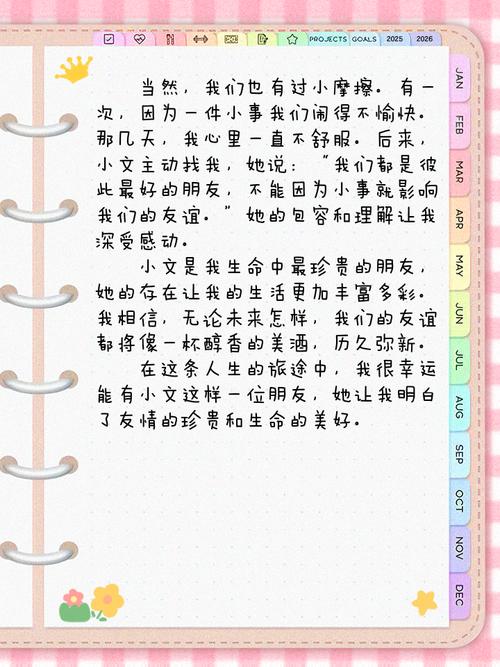 PROJECTS GOALS 2025 2026
当然，我们也有过小摩擦。有一
次，因为一件小事我们闹得不愉快。
那几天，我心里一直不舒服。后来，
小文主动找我，她说：“我们都是彼
此最好的朋友，不能因为小事就影响
我们的友谊。”她的包容和理解让我
深受感动。
小文是我生命中最珍贵的朋友，
她的存在让我的生活更加丰富多彩。
我相信，无论未来怎样，我们的友谊
都将像一杯醇香的美酒，历久弥新。
在这条人生的旅途中，我很幸运
能有小文这样一位朋友，她让我明白
了友情的珍贵和生命的美好。
JAN
FEB
MAR
APR
MAY
JUN
JUL
AUG
SEP
OCT
NOV
DEC